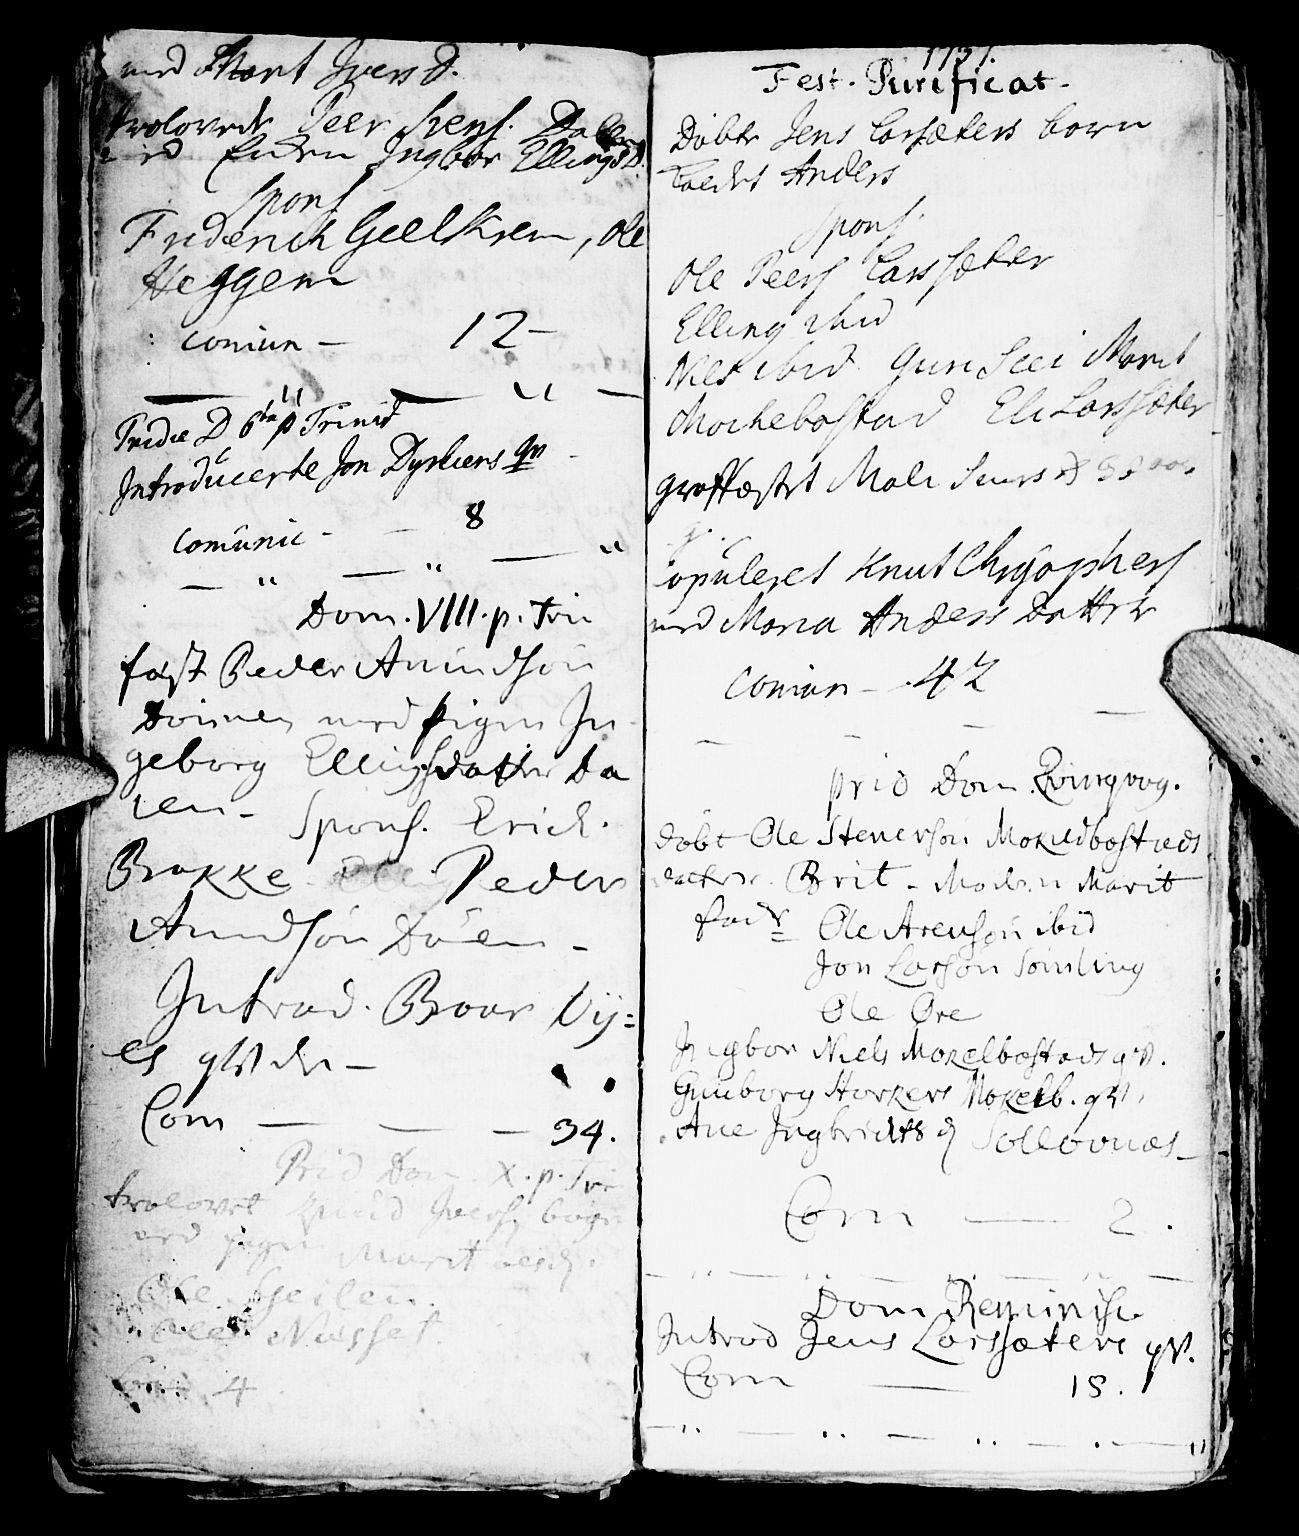 med Marit Ivers D.
trolovede Peer Svens. Dalen
med Enken Ingbor Ellings D.
Spons
Friderich Geelkrem, Ole
Heggem
comun – 12 –
Pridie D 6ta p Trinit
Introducerte Jon Dyrliers qv
comunic – 8
Dom. VIII. p. Trin
fæst Peder Amundsøn
Døinen med pigen In-
geborg Ellingsdatter Da
len – Spons. Erich.
Brakke Peder
Amundsøn Døen –
Introd. Roar Vij=
es qv den –
Com — — — 34.
Prid Dom. X. p. Tri
trolovet Knud Iversøn
med pigen Marit
Ole
Nusset
4
1731.
Fest. Purificat.
Døbte Jens Larsæters barn
kaldet Anders
Spons.
Ole Peers Larssæter
Elling ibid
Niels ibid Guri Sæi Marit
Mochelbostad Eli Larssæter
graffæstet Mali Siurs D
Copuleret Knut Chrystophers
med Maria Anders Datter
comun – 42
prid Dom. Qvinqvag.
døbt Ole Stenersøn Mokelbostads
datter Brit – Moderen Marit
fadr Ole Arensøn ibid
Jon Larsøn Somling
Ole Øre
Ingbor Niels Mokelbostads qv.
Gunborg Storkers Mokelb. qv.
Ane Ingbrichts d Sollovnæs –
Com — 2.
Dom Reminisc
Introd Jens Larssæters qv.
Com — 18.